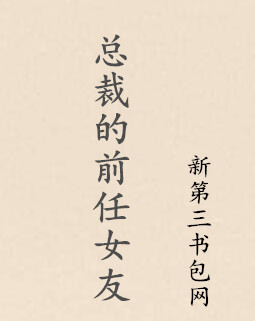 总裁的前任女友
新第三书包网